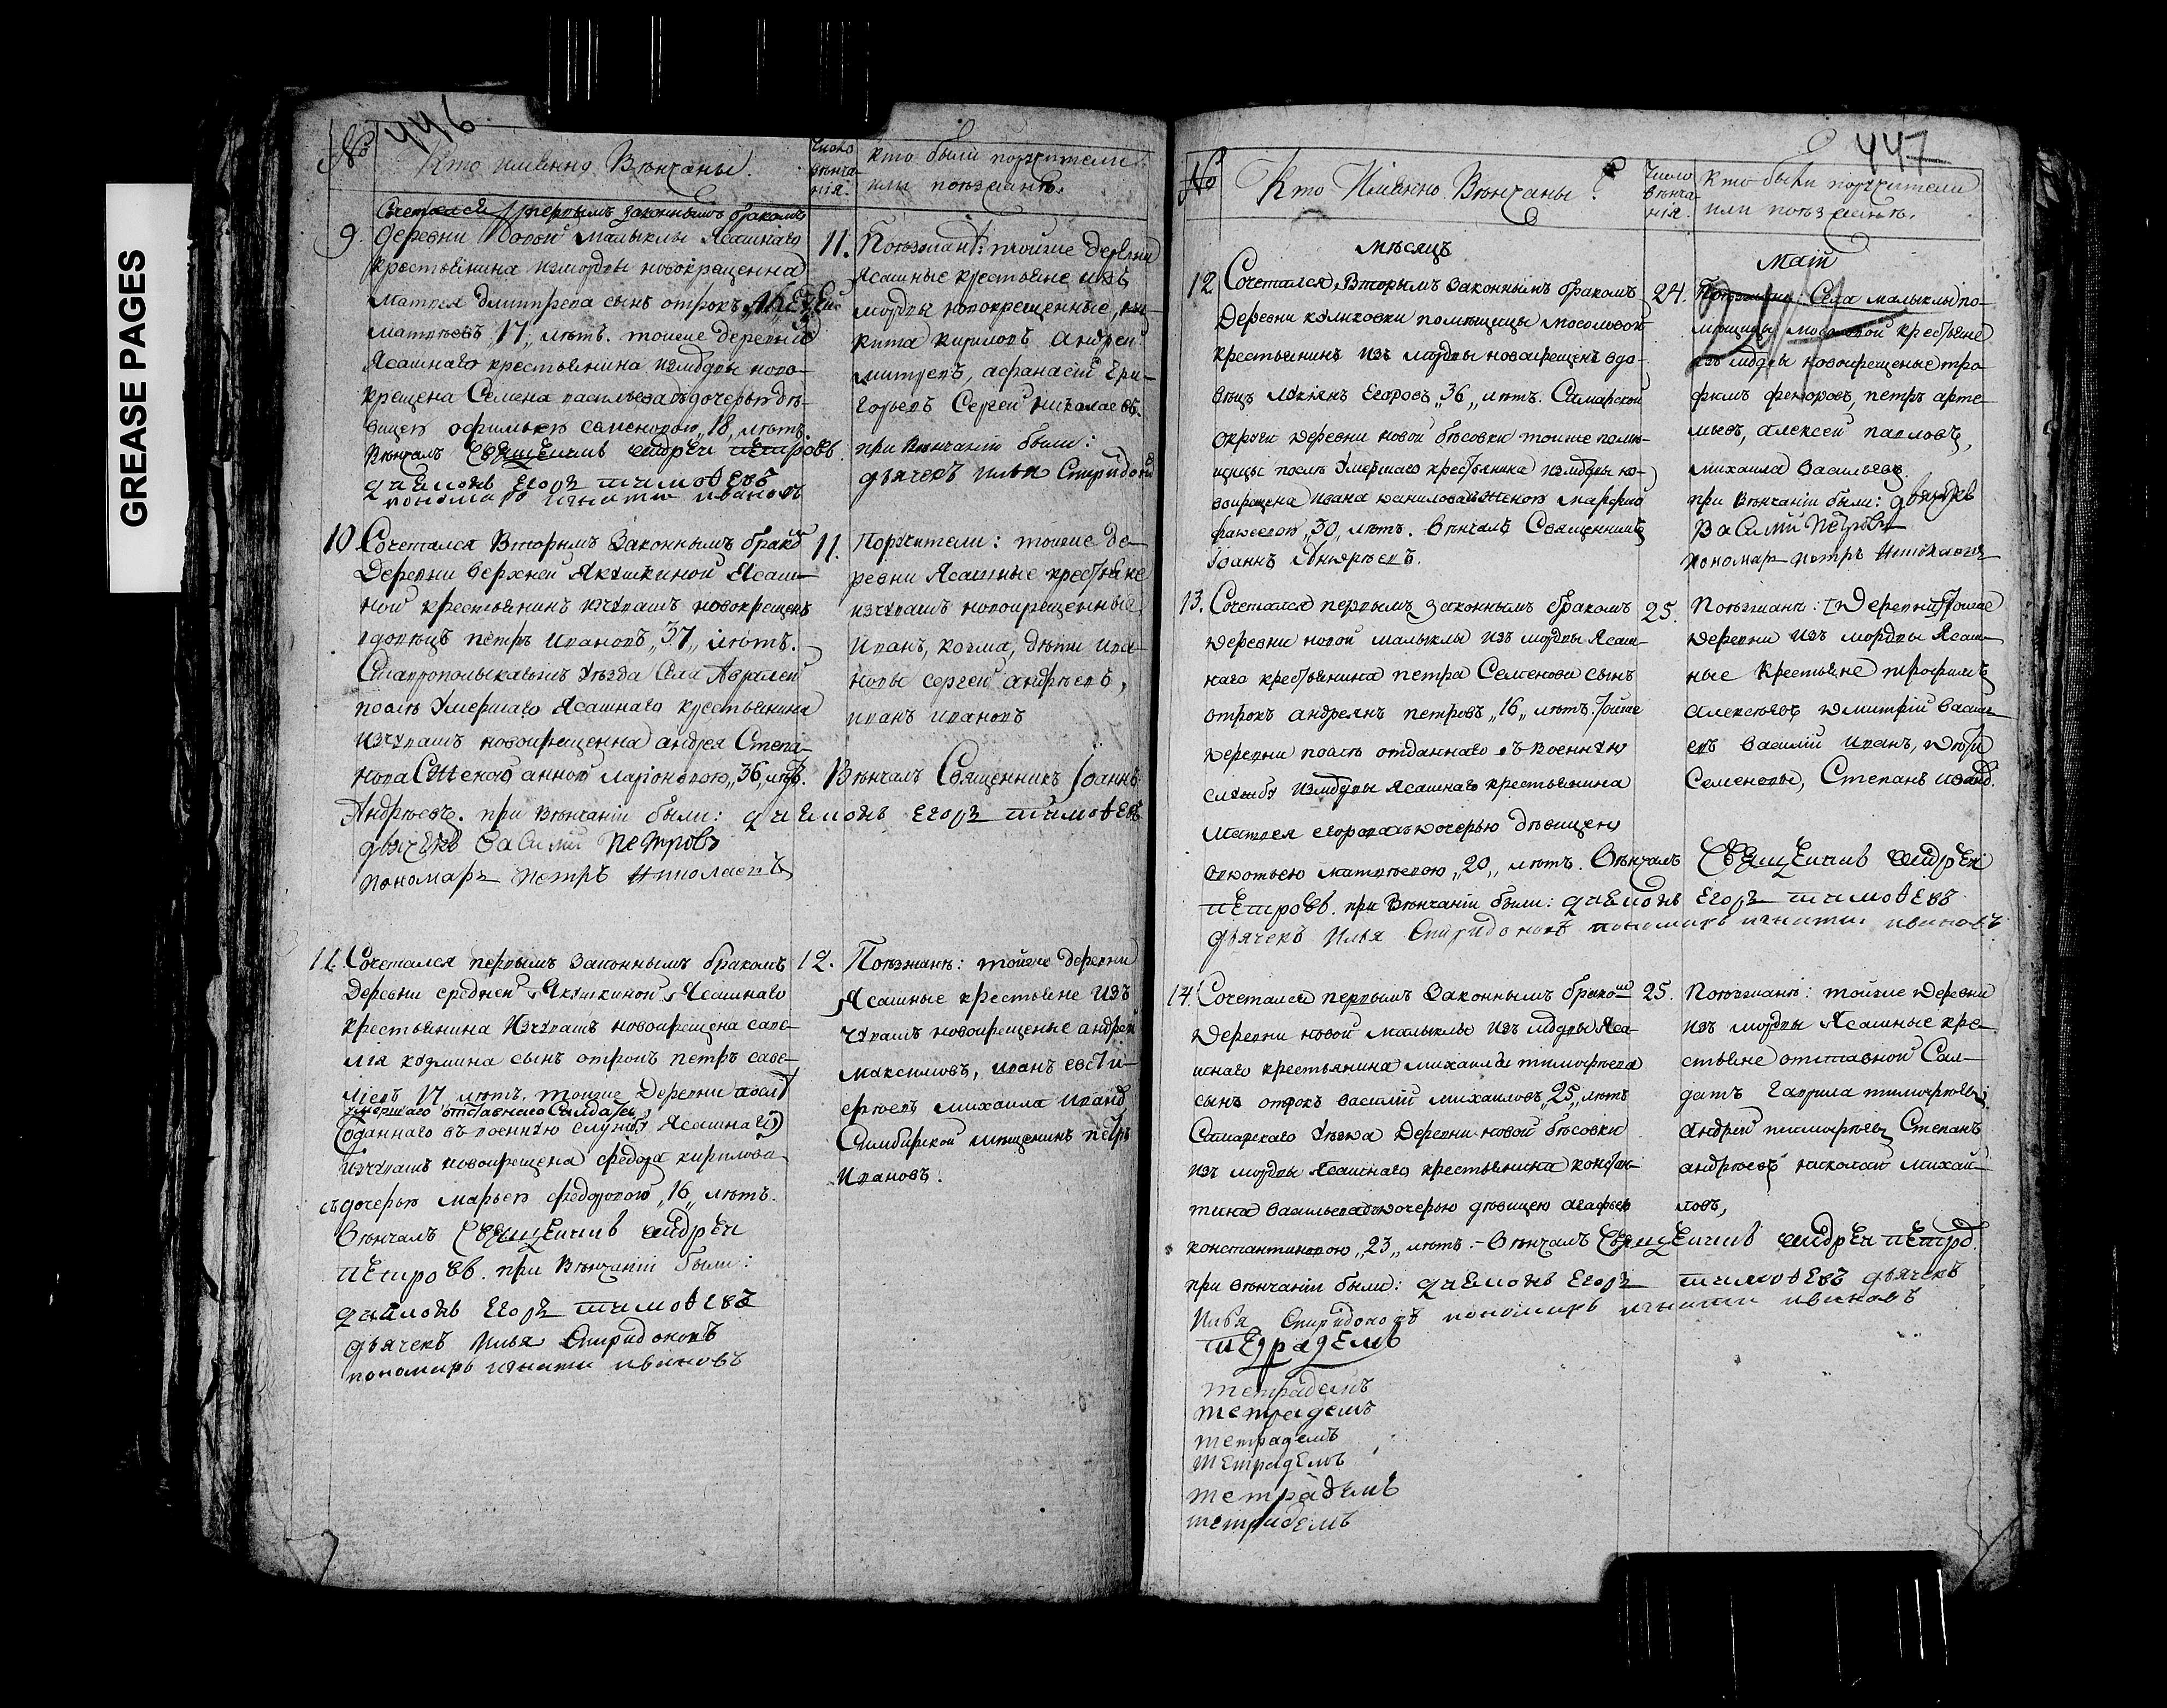 GREASE PAGES
446
№
Кто имянно Венчаны.
Число венчания.
кто были поручители
или поезжанѣ.
Сочетался первымъ законнымъ бракомъ
9. деревни Новой малыклы Ясашнаго
крестьянина измордвы новокрещенна
матвея дмитрева сынъ отрокъ
матвѣевъ „17„ лѣтъ. тоиже деревни
Ясашнаго крестьянина измордвы ново-
крещена Семена васильева съдочерью дѣ-
вицею семеновою „18„ лѣтъ.
Венчалъ Священникъ андрей петровъ.
диаконъ егоръ тимоѳеевъ
пономарь игнатий ивановъ
11. Поезжанѣ: тоиже деревни
Ясашные крестьяне изъ
мордвы новокрещенные, ни-
кита кириловъ андрей
митревъ, афанасий гри-
горьевъ Сергей николаевъ.
при Венчании были:
дьячекъ илья Спиридоновъ
10 Сочетался Вторымъ Законнымъ бракомъ
Деревни верхней Якушкиной Ясаш-
ной крестьянинъ изчувашъ новокрещенъ
вдовецъ петръ ивановъ „37„ лѣтъ.
уезда Села
послѣ умершаго Ясашнаго крестьянина
изчувашъ новокрещенна андрея Степа-
нова Сженою анною ларионовою „36„ лѣтъ.
11. Поручители: тоиже де-
ревни Ясашные крестьяне
изчувашъ новокрещенные
Иванъ, козма, дѣти ива-
новы сергей андреевъ,
иванъ ивановъ
Венчалъ Священникъ Иоаннъ
Андреевъ. при Венчании были: диаконъ егоръ тимоѳеевъ
дьячекъ василий петровъ
пономарь петръ николаевъ
11. Сочетался первымъ Законнымъ бракомъ
Деревни средней Якушкиной Ясашнаго
крестьянина Изчувашъ новокрещена саве-
лия козмина сынъ отрокъ петръ саве-
лиевъ 17 лѣтъ. тоиже Деревни послѣ
умершаго отставнаго Салдата
(отданнаго въ военную службу Ясашнаго)
изчувашъ новокрещена федора кирилова
съдочерью марьею федоровою „16„ лѣтъ.
Венчалъ Священникъ андрей
петровъ. при Венчании были:
диаконъ егоръ тимоѳеевъ
дьячекъ илья Спиридоновъ
пономарь игнатий ивановъ
12. Поезжанѣ: тоиже деревни
Ясашные крестьяне Изъ
чувашъ новокрещенные андрей
максимовъ, иванъ евсти-
феевъ михаила иванов
Симбирской мещенинъ петръ
Ивановъ.
447
№
Кто Имянно Венчаны?
Число венчания.
кто были поручители
или поезжанѣ.
мѣсяцъ
Май
12 Сочетался, Вторымъ Законнымъ бракомъ
Деревни куликовки помещицы мосоловой
крестьянинъ изъ мордвы новокрещенъ вдо-
вецъ Егоровъ „36„ лѣтъ. Самарской
округи деревни новой бесовки тоиже поме-
щицы послѣ умершаго крестьянина измордвы но-
вокрещена ивана данилова съженою марфою
„30„ лѣтъ. венчалъ Священникъ
Иоаннъ Андреевъ.
24. Поезжанѣ: Села малыклы по-
мещицы мосоловой крестьяне
изъ мордвы новокрещеные тро-
фимъ федоровъ, петръ арте-
мьевъ, алексей павловъ,
михаила васильевъ.
при Венчании были: дьячекъ
василий петровъ
пономарь петръ николаевъ
13. Сочетался первымъ законнымъ бракомъ
деревни новой малыклы изъ мордвы Ясаш-
наго крестьянина петра Семенова сынъ
отрокъ андреянъ петровъ „16„ лѣтъ. тоиже
деревни послѣ отданнаго въ военную
службу измордвы Ясашнаго крестьянина
матвея егорова съдочерью девицею
матвеевою „20„ лѣтъ. венчалъ Священникъ андрей
петровъ. при Венчании были: диаконъ егоръ тимоѳеевъ
дьячекъ илья Спиридоновъ пономарь игнатий ивановъ
25. Поезжанѣ: Деревни тоиже
деревни изъ мордвы Ясаш-
ные Крестьяне трофимъ
алексеевъ дмитрий василь-
евъ василий иванъ, дѣти
Семеновы, Степанъ иванов.
14. Сочетался первымъ Законнымъ бракомъ
Деревни новой малыклы изъ мордвы Яса-
шнаго крестьянина михаила тимофеева
сынъ отрокъ василий михаиловъ „25„ лѣтъ
Самарскаго уезда Деревни новой бесовки
изъ мордвы Ясашнаго крестьянина констан-
тина васильева съдочерью девицею агафьею
константиновою „23„ лѣтъ. – Венчалъ Священникъ андрей петров.
при венчании были: диаконъ егоръ тимоѳеевъ дьячекъ
Илья Спиридоновъ пономарь игнатий ивановъ
25. Поезжанѣ: тоиже деревни
изъ мордвы Ясашные кре-
стьяне отставной Сал-
датъ гаврила тимофеевъ
андрей тимофеевъ Степанъ
андреевъ николай михаи-
ловъ,
тетрадемъ
тетрадемъ
тетрадемъ
тетрадемъ
тетрадемъ
тетрадемъ
тетрадемъ